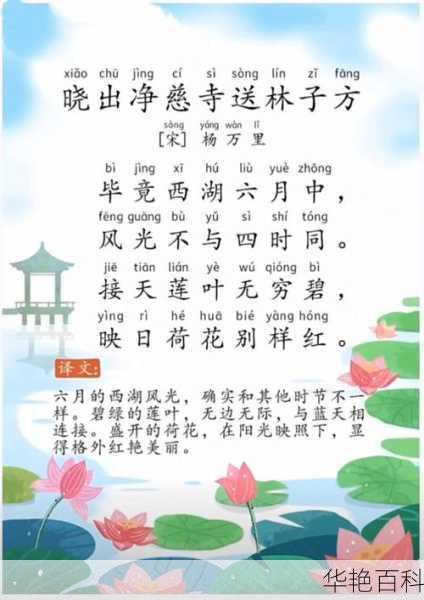 xiǎo chū jìng cí sì sòng lín zǐ fāng
晓出净慈寺送林子方
sòng yáng wàn lǐ
[宋] 杨万里
bì jìng xī hú liù yuè zhōng
毕竟西湖六月中，
fēng guāng bù yǔ sì shí tóng
风光不与四时同。
jiē tiān lián yè wú qióng bì
接天莲叶无穷碧，
yìng rì hé huā bié yàng hóng
映日荷花别样红。
译文:
六月的西湖风光，确实和其他时节不一
样。碧绿的莲叶，无边无际，与蓝天相
连接。盛开的荷花，在阳光映照下，显
得格外红艳美丽。
华艳百科